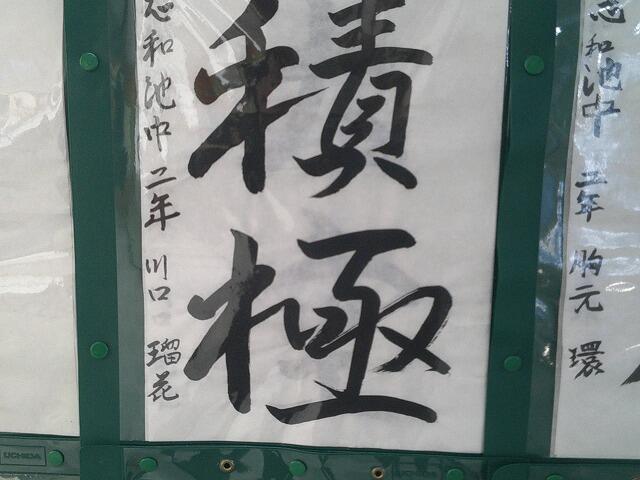 志和池中 二年 胸元 環
積極
志和池中 二年 川口 瑠花
UCHIDA